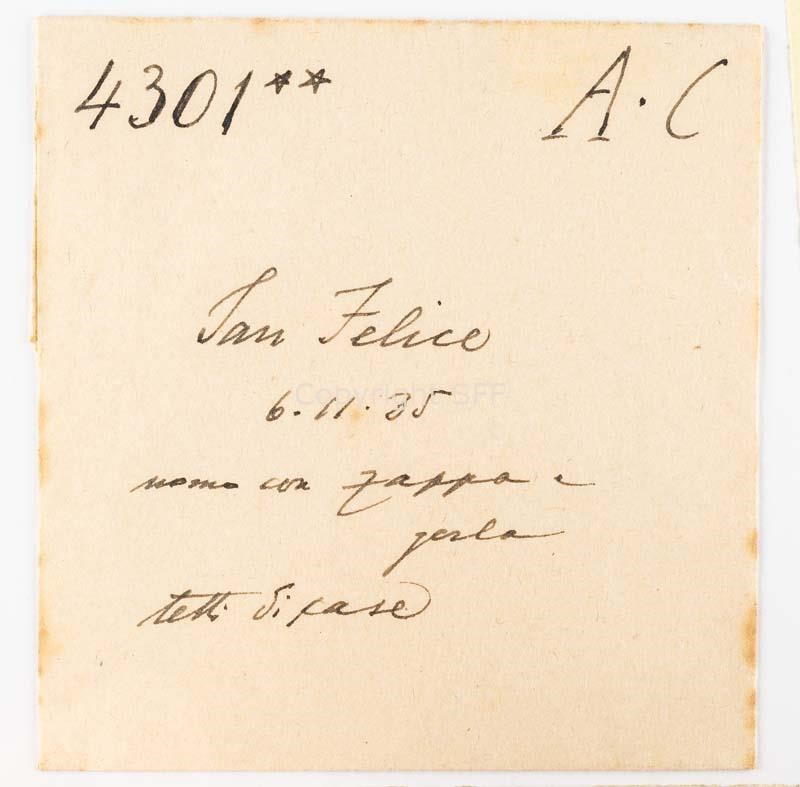 4301** A.C
San Felice
6.11.35
uomo con zappa e
gerla
tetti di case
Copyright SFF